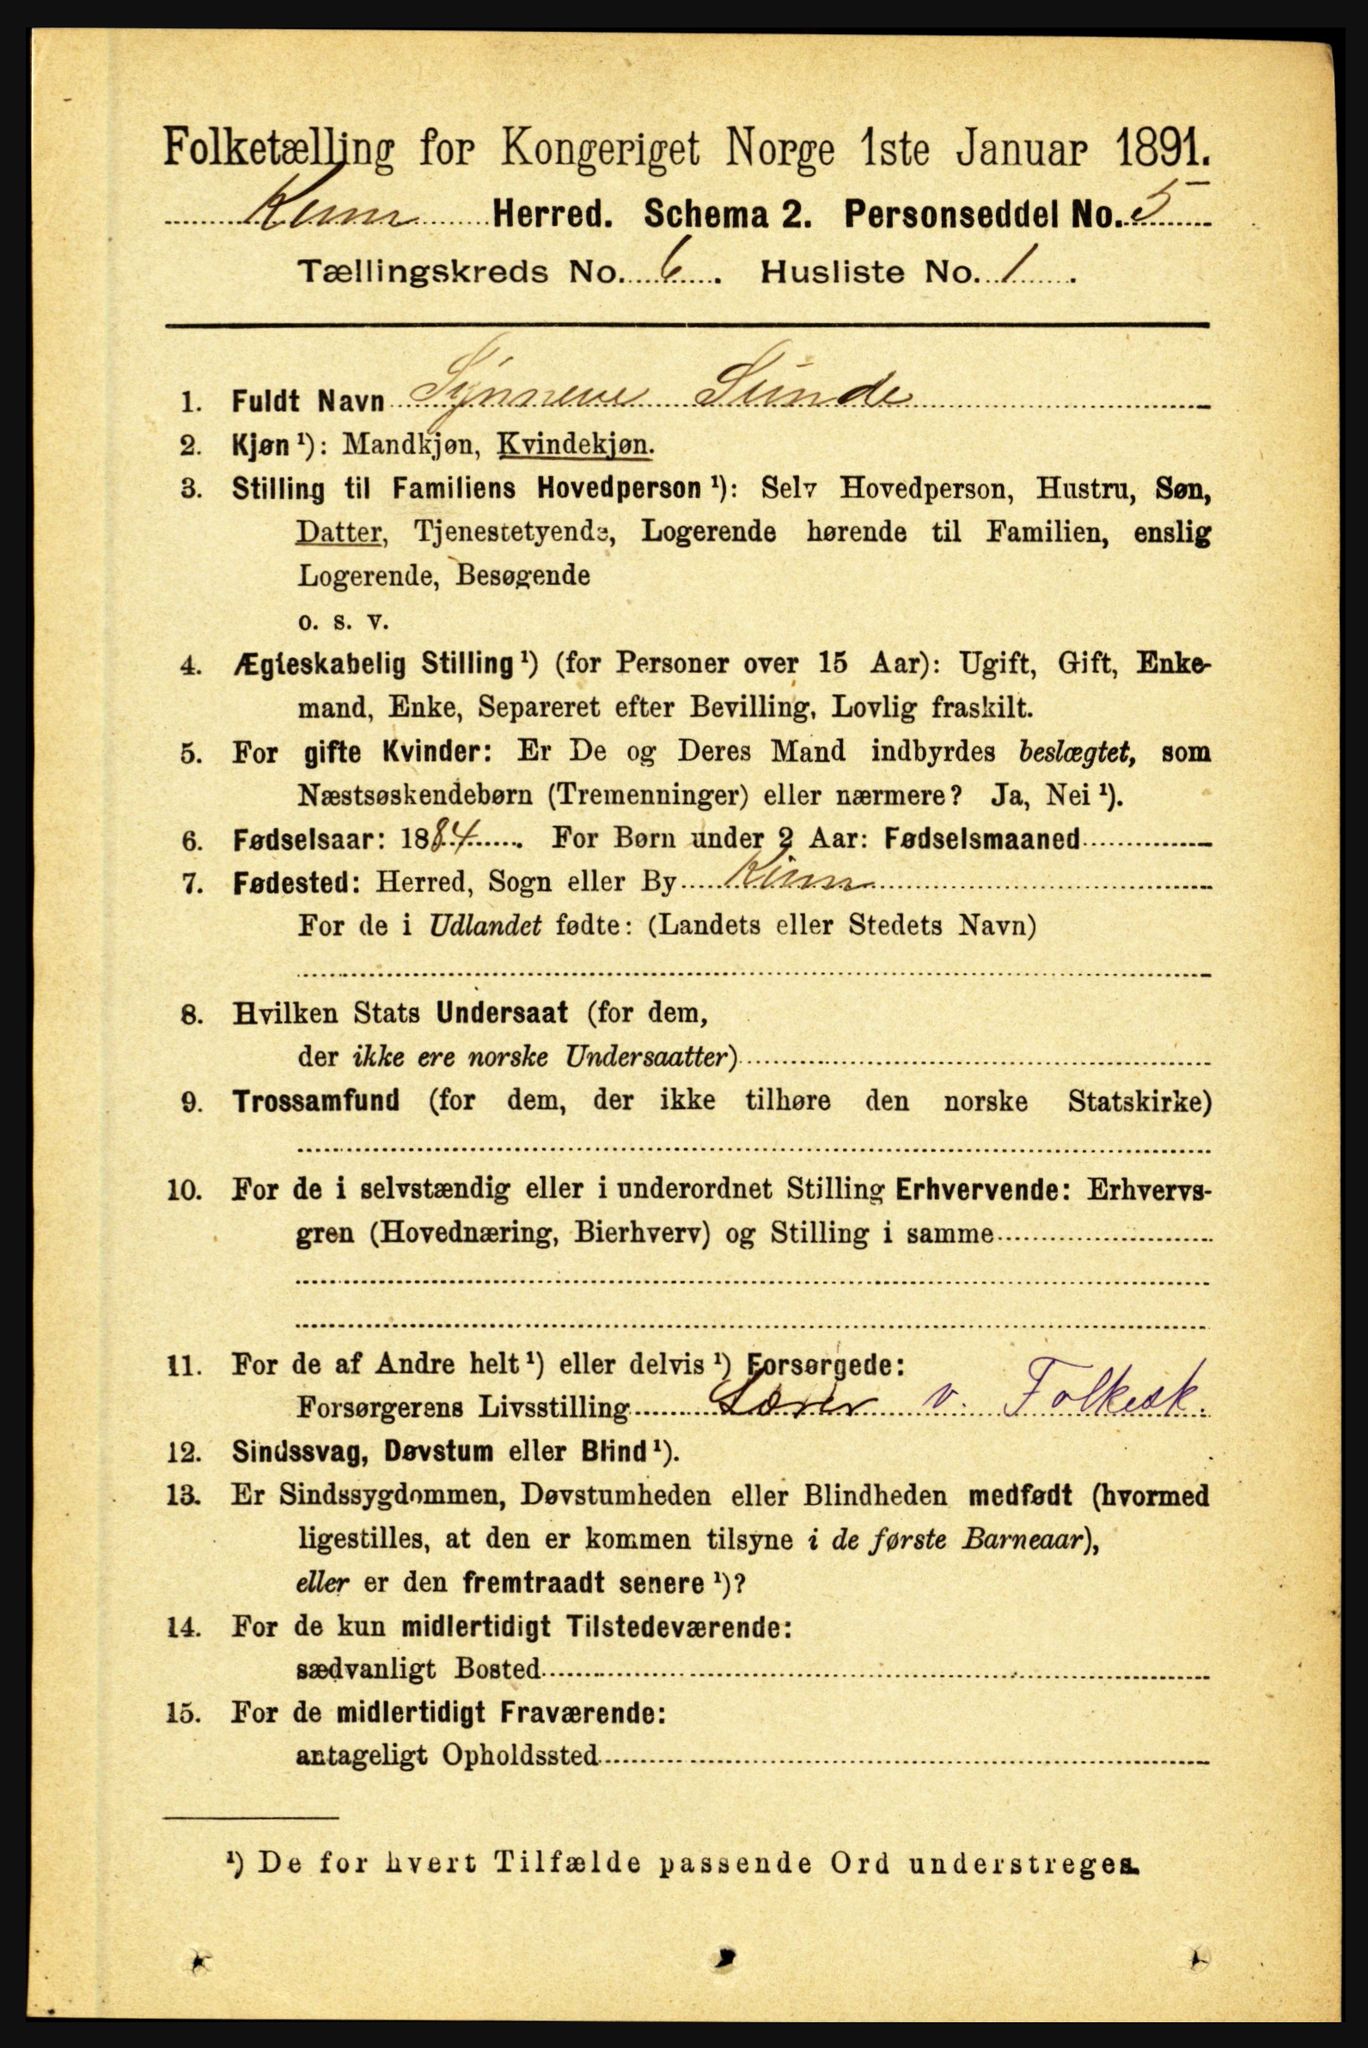 Folketælling for Kongeriget Norge 1ste Januar 1891.
Kinn Herred. Schema 2. Personseddel No. 5
Tællingskreds No. 6. Husliste No. 1.
1. Fuldt Navn Synneve Sunde
2. Kjøn ¹): Mandkjøn, Kvindekjøn.
3. Stilling til Familiens Hovedperson ¹): Selv Hovedperson, Hustru, Søn,
Datter, Tjenestetyende, Logerende hørende til Familien, enslig
Logerende, Besøgende
o. s. v.
4. Ægteskabelig Stilling ¹) (for Personer over 15 Aar): Ugift, Gift, Enke-
mand, Enke, Separeret efter Bevilling, Lovlig fraskilt.
5. For gifte Kvinder: Er De og Deres Mand indbyrdes beslægtet, som
Næstsøskendebørn (Tremenninger) eller nærmere? Ja, Nei ¹).
6. Fødselsaar: 1884. For Børn under 2 Aar: Fødselsmaaned
7. Fødested: Herred, Sogn eller By Kinn
For de i Udlandet fødte: (Landets eller Stedets Navn)
8. Hvilken Stats Undersaat (for dem,
der ikke ere norske Undersaatter)
9. Trossamfund (for dem, der ikke tilhøre den norske Statskirke)
10. For de i selvstændig eller i underordnet Stilling Erhvervende: Erhvervs-
gren (Hovednæring, Bierhverv) og Stilling i samme
11. For de af Andre helt ¹) eller delvis ¹) Forsørgede:
Forsørgerens Livsstilling Lærer v. Folkesk.
12. Sindssvag, Døvstum eller Blind ¹).
13. Er Sindssygdommen, Døvstumheden eller Blindheden medfødt (hvormed
ligestilles, at den er kommen tilsyne i de første Barneaar),
eller er den fremtraadt senere ¹)?
14. For de kun midlertidigt Tilstedeværende:
sædvanligt Bosted
15. For de midlertidigt Fraværende:
antageligt Opholdssted
¹) De for hvert Tilfælde passende Ord understreges.